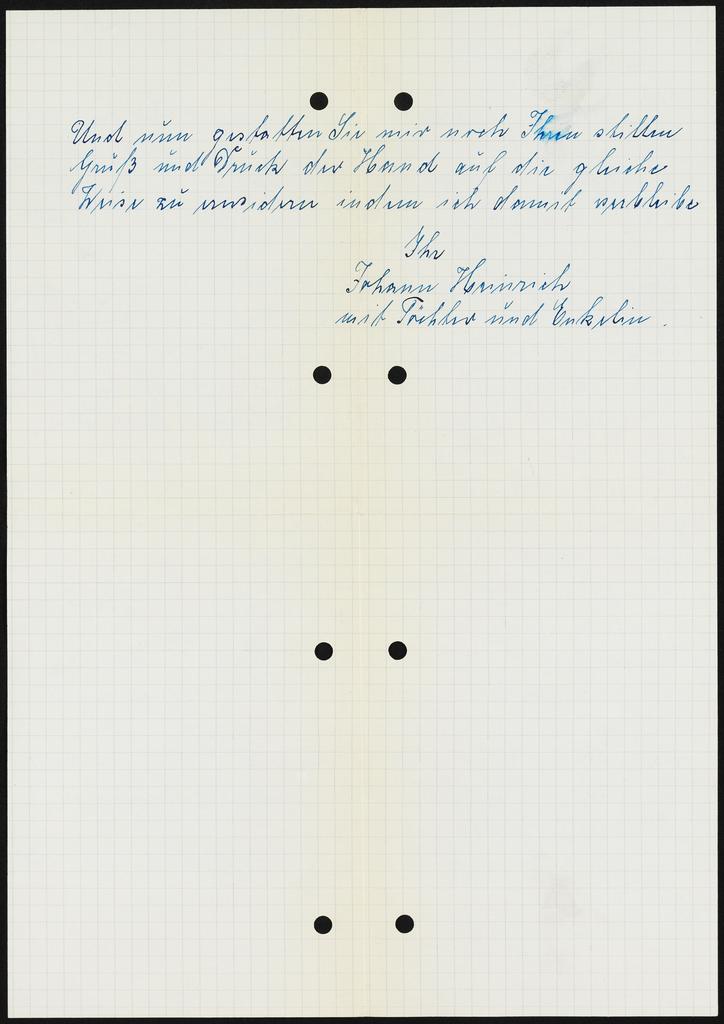 Und nun gestatten Sie mir noch Ihren stillen
Gruß und Druck der Hand auf die gleiche
Weise zu erwidern indem ich damit verbleibe
Ihr
Johann Heinrich
mit Tochter und Enkelin.